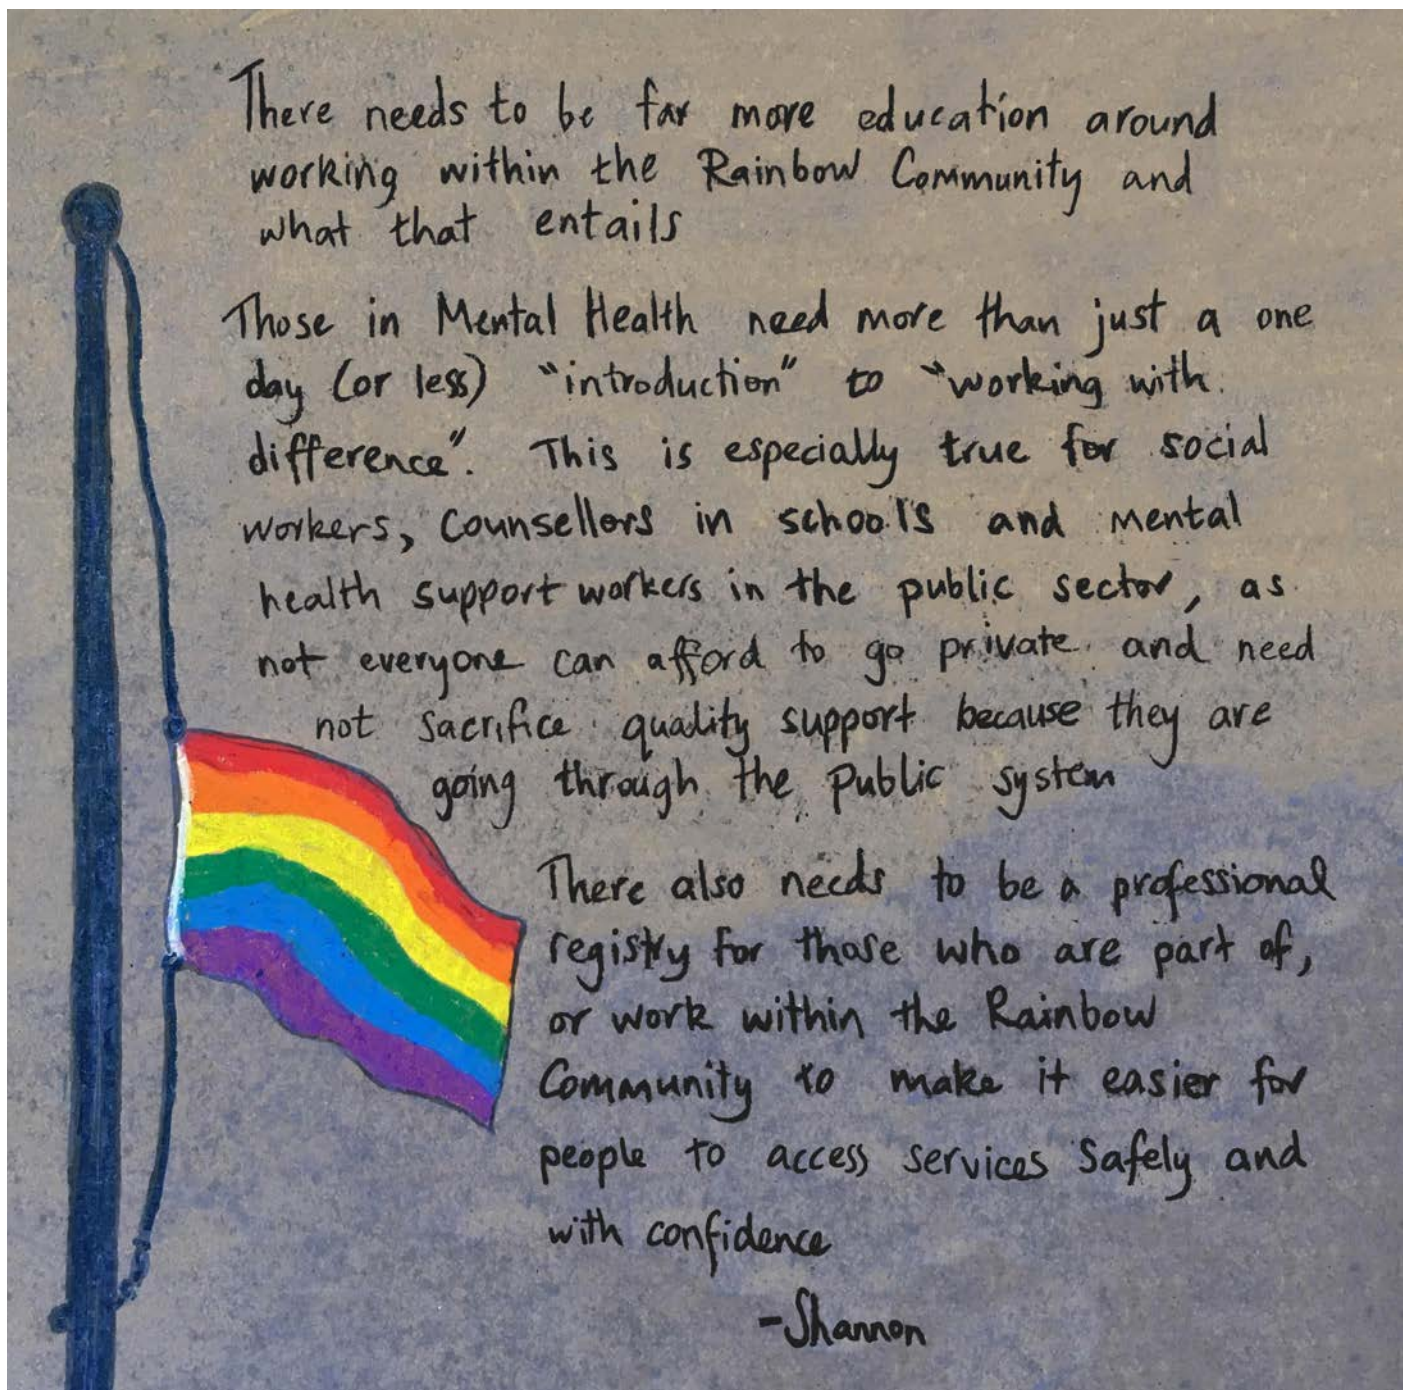 There needs to be far more education around
working within the Rainbow Community and
what that entails
Those in Mental Health need more than just a one
day (or less) "introduction" to "working with
difference". This is especially true for social
workers, counsellors in schools and mental
health support workers in the public sector, as
not everyone can afford to go private and need
not sacrifice quality support because they are
going through the public system
There also needs to be a professional
registry for those who are part of,
or work within the Rainbow
Community to make it easier for
people to access services safely and
with confidence
-Shannon